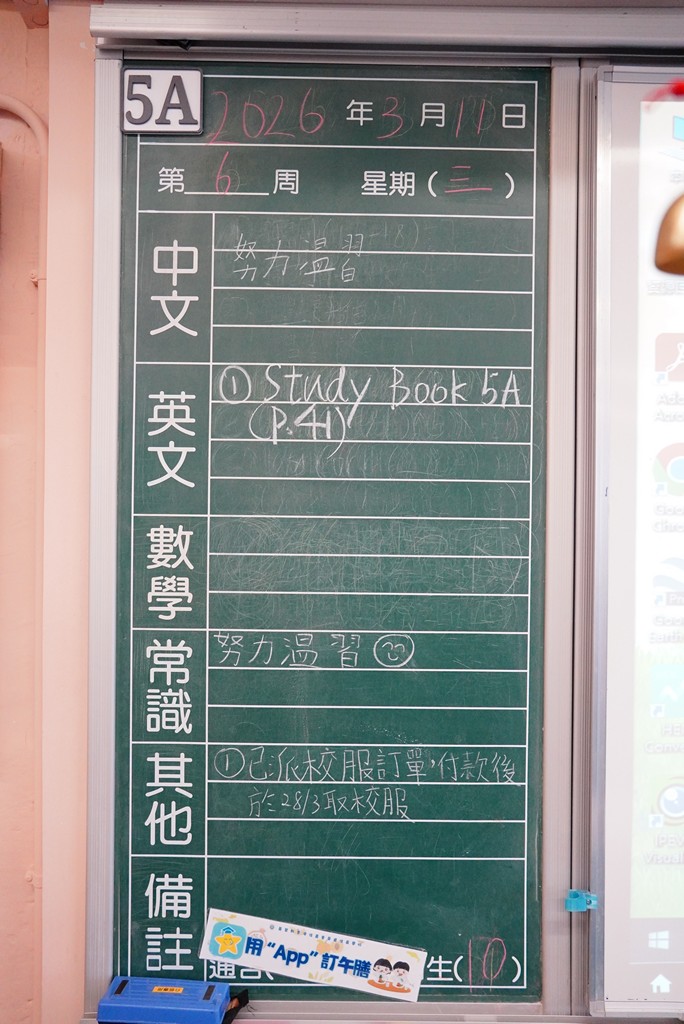 5A
2026 年 3 月 11 日
第 6 周 星期 (三)
中文
努力溫習
英文
① Study Book 5A
(P.41)
數學
常識
努力溫習
其他
①已派校服訂單，付款後
於28/3取校服
備註
用 “App” 訂午膳
生(10)